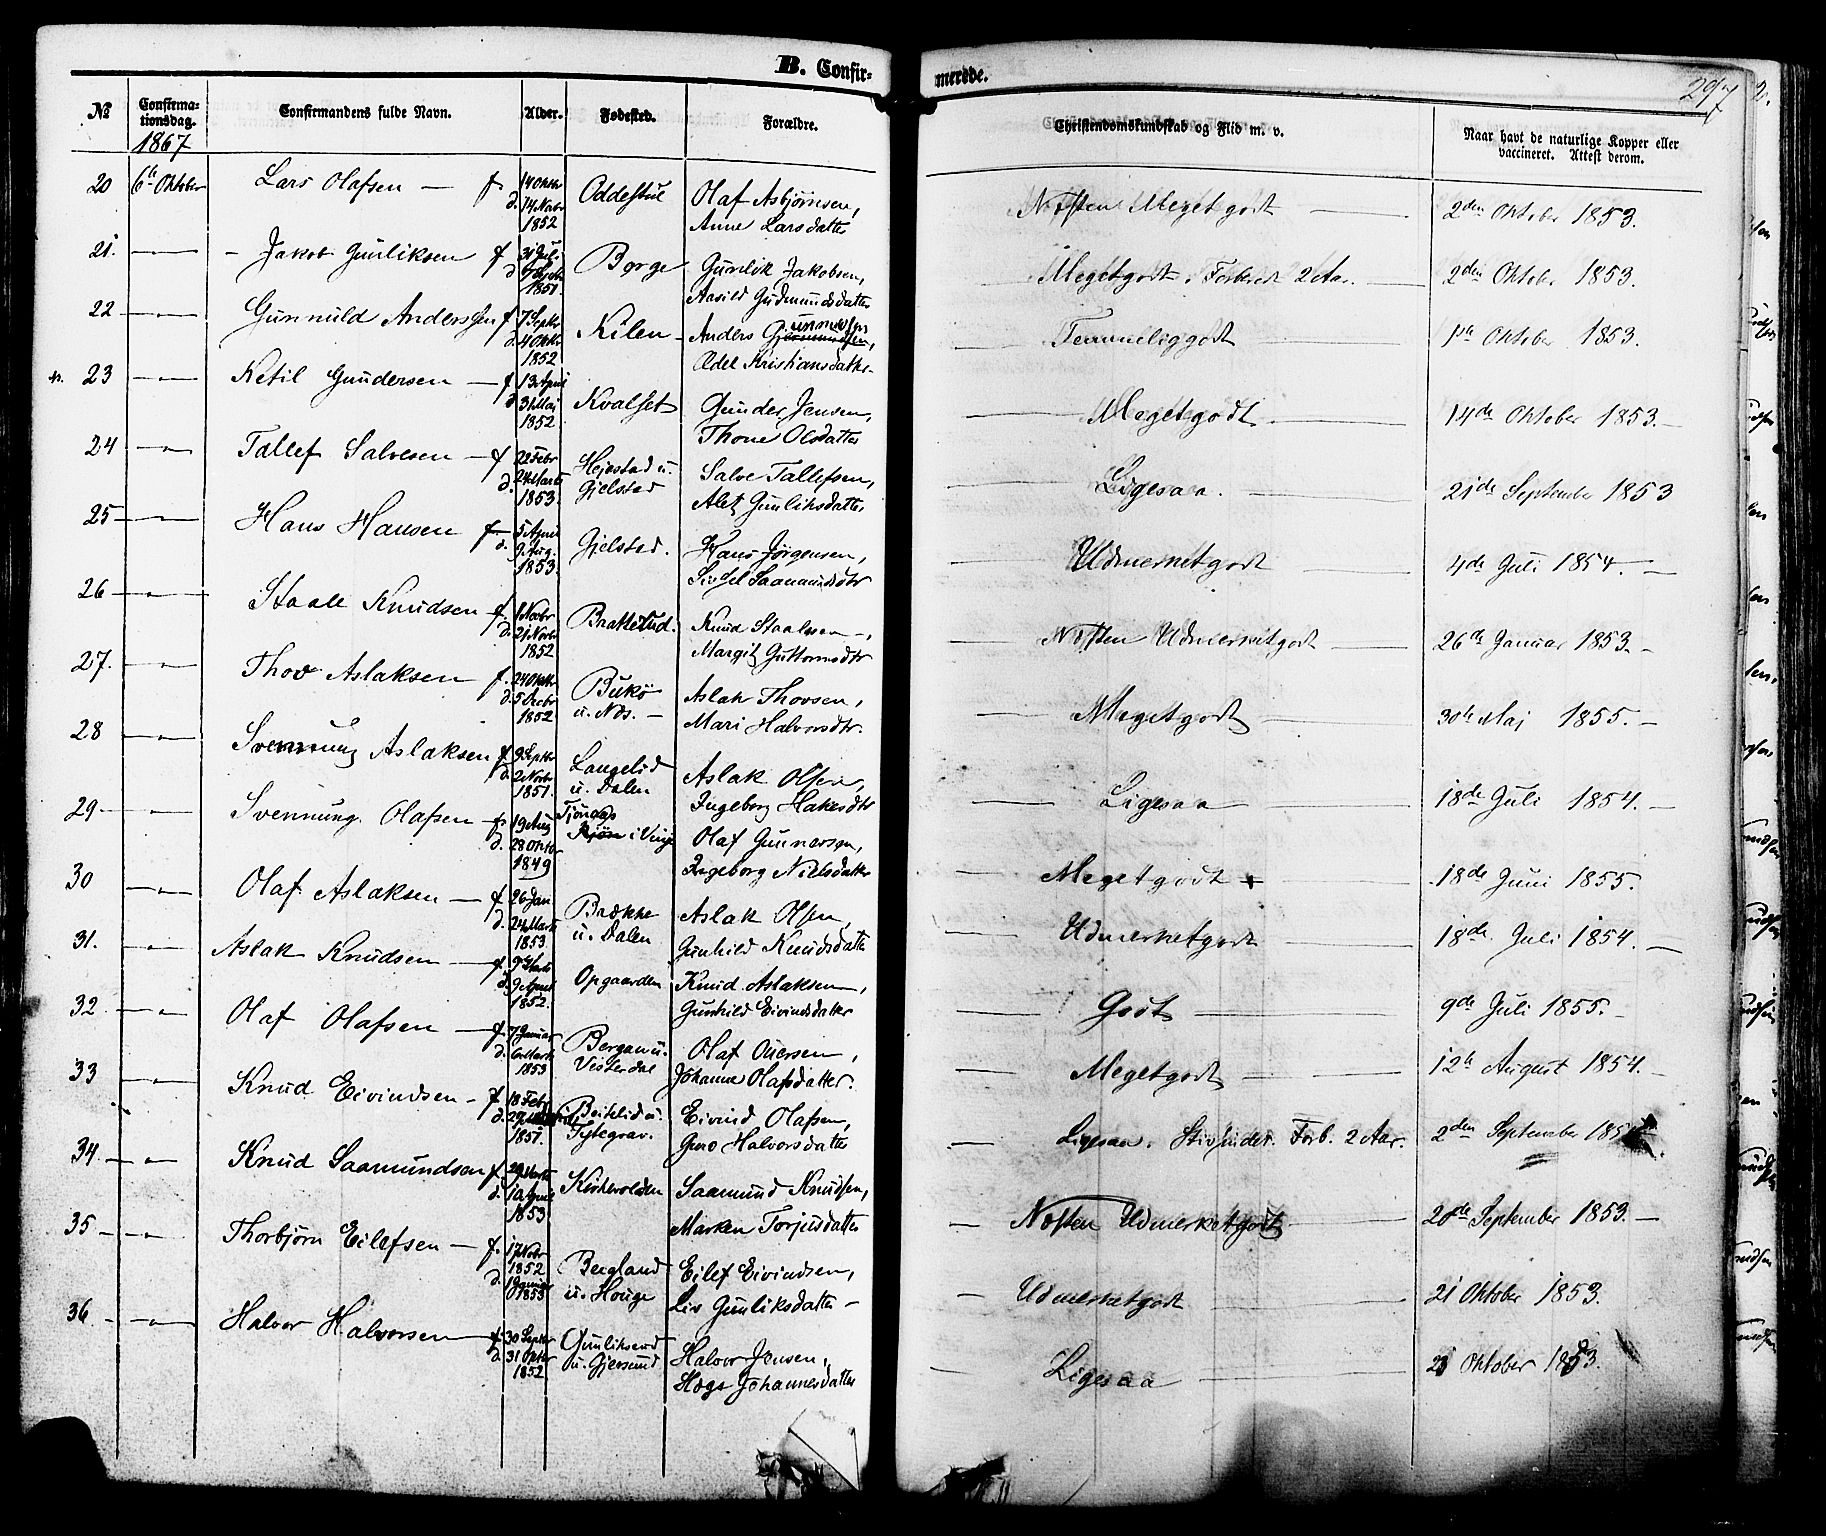 B. Confir-
merede.
297
№
Confirma-
tionsdag.
1867
Confirmandens fulde Navn.
Alder.
Fødested.
Forældre.
Christendomskundskab og Flid m. v.
Naar havt de naturlige Kopper eller
vaccineret. Attest derom.
20 6te Oktober Lars Olafsen — f. 14 Oktbr Oddestul Olaf Asbjørnsen, Næsten Meget godt — 2den Oktober 1853.
d. 14 Novbr
1852 Anne Larsdatter
21. — " — Jakob Gunliksen f 31 Juli Borge Gunlik Jakobsen, Meget godt. Forbered 2 Aar. 2den Oktober 1853.
1851. Aasild Gudmundsdatter
22 — " — Gunnuld Anderssen f 7 Septbr Kilen Anders Gunnulsen, Temmelig godt 1ste Oktober 1853.
d. 4 Oktbr
1852 Edel Kristiansdatter
23 — " — Ketil Gundersen — f 13 April Kvalset Gunder Jensen, Meget godt. 14de Oktober 1853. —
d. 31 Maj
1852 Thone Olsdatter
24 — " — Tallef Salvesen — f 22 Febr Hejestad u. Salve Tallefsen, Ligesaa. 21de September 1853
d. 24 Marts Gjelstad
1853. Alet Gunliksdatter
25 — " — Hans Hansen f 5 April Gjelstad. Hans Jørgensen, Udmerket godt 4de Juli 1854. —
d. 9 Aug.
1853. Sigel Saamundsdtr
26 — " — Staale Knudsen f. 1 Novbr Bakkelud. Knud Staalesen —, Næsten Udmerket godt 26de Januar 1853. —
d. 21 Novbr
1852 Margit Guttormsdtr
27. — " — Thov Aslaksen f. 24 Oktbr Bukø Aslak Thovsen, Meget godt 30te Maj 1855. —
d. 5 Decbr u. Nds. —
1852 Mari Halvorsdtr.
28 — " — Svennung Aslaksen f. 9 Septbr Langelid Aslak Olsen, Ligesaa 18de Juli 1854. —
d. 2 Novbr u. Dalen
1851. Ingeborg Hakesdtr
29 — " — Svennung Olafsen — f. 19 Aug i Vinje Olaf Gunnarsen, Meget godt 18de Juni 1855.
d. 28 Oktbr
1849 Ingeborg Nielsdatter
30 — " — Olaf Aslaksen — f. 26 Jan Brække Aslak Olsen, Udmerket godt 18de Juli 1854. —
d. 24 Marts u. Dalen
1853 Gunhild Knudsdatter
31. — " — Aslak Knudsen — f. 9 Marts Opgaarden Knud Aslaksen, Godt 9de Juli 1855. —
d. 9 April
1852. Gunhild Eivindsdatter
32 — " — Olaf Olafsen — f. 7 Januar Bergan u. Olaf Oversen, Meget godt 12te August 1854. —
d. 6 Marts Vesterdal
1853 Johanne Olafsdatter.
33 — " — Knud Eivindsen — f. 18 Febr Beitelid u. Eivind Olafsen, Ligesaa. Stivsindet. Forb. 2 Aar. 2den September
1851. Tytegrav. Gro Halvorsdatter
34 — " — Knud Saamundsen f. 29 Marts Kirkevolden Saamund Knudsen, Næsten Udmerket godt 20de September 1853. —
d. 10 April
1853 Marken Torjusdatter
35 — " — Thorbjørn Eilefsen — f. 17 Nobr Bergland Eilef Eivindsen, Udmerket godt 21 Oktober 1853.
1852
d. 1 Januar u. Houge
1853 Liv Gunliksdatter —
36 — " — Halvor Halvorsen f. 30 Septbr Gunliksrod Halvor Jensen, Ligesaa Oktober 1853.
d. 31 Oktbr u. Gjersund
1852 Høge Johannesdatter